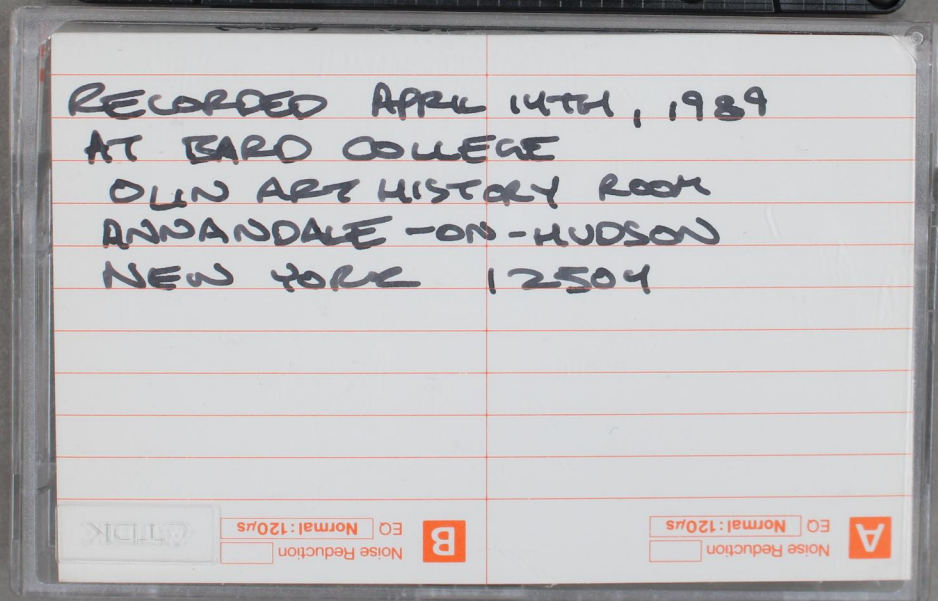 RECORDED APRIL 14TH, 1989
AT BARD COLLEGE
OLIN ART HISTORY ROOM
ANNANDALE-ON-HUDSON
NEW YORK 12504
A EQ Normal:120µs
Noise Reduction
B EQ Normal:120µs
Noise Reduction
TDK